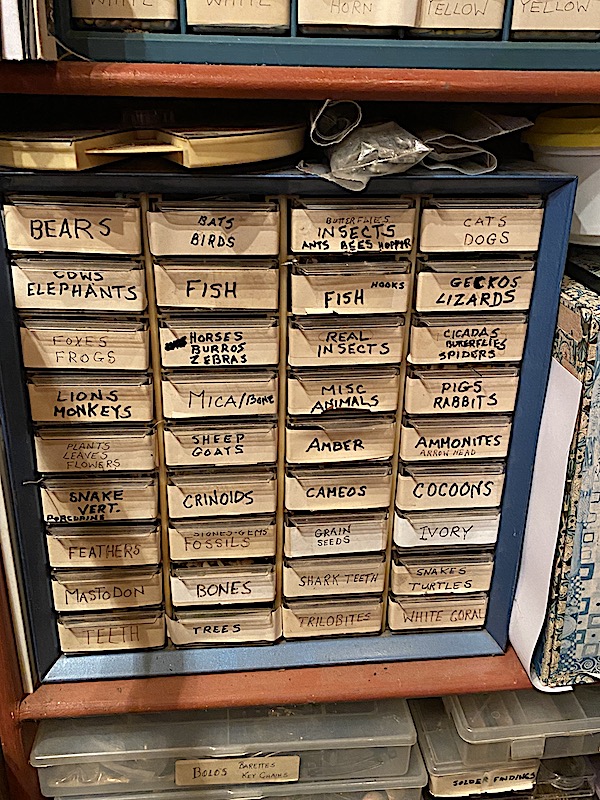 WHITE
WHITE
HORN
YELLOW
YELLOW
BEARS
BATS
BIRDS
BUTTERFLIES
INSECTS
ANTS BEES HOPPER
CATS
DOGS
COWS
ELEPHANTS
FISH
FISH HOOKS
GECKOS
LIZARDS
FOXES
FROGS
HORSES
BURROS
ZEBRAS
REAL
INSECTS
CICADAS
BUTERFLIES
SPIDERS
LIONS
MONKEYS
MICA/BONE
MISC
ANIMALS
PIGS
RABBITS
PLANTS
LEAVES
FLOWERS
SHEEP
GOATS
AMBER
AMMONITES
ARROW HEAD
SNAKE
VERT.
PORCUPINE
CRINOIDS
CAMEOS
COCOONS
FEATHERS
STONES-GEMS
FOSSILS
GRAIN
SEEDS
IVORY
MASTODON
BONES
SHARK TEETH
SNAKES
TURTLES
TEETH
TREES
TRILOBITES
WHITE CORAL
BOLO'S BARETTES
KEY CHAINS
SOLDER FINDINGS